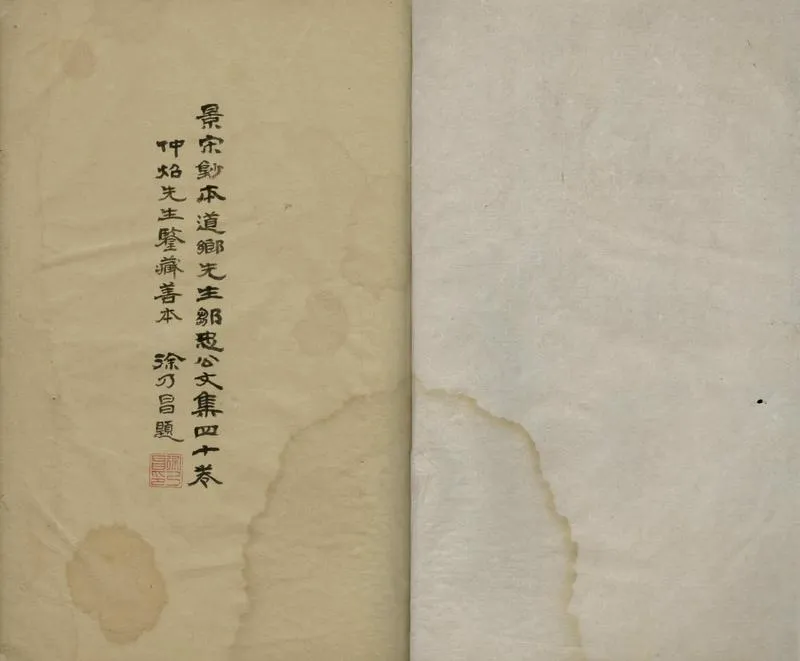 景宋鈔本道鄉先生鄒忠公文集四十卷
仲炤先生鑒藏善本 徐乃昌題